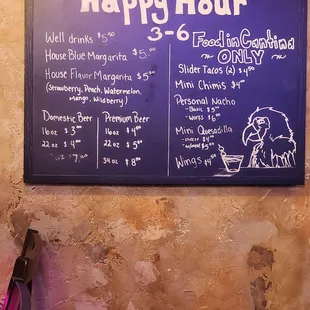 Happy Hour
3-6
Well drinks $5.00
House Blue Margarita $5.00
House Flavor Margarita $5.00
(Strawberry, Peach, Watermelon,
Mango, Wildberry)
Domestic Beer
16 oz $3.00
22 oz $4.00
oz $7.00
Premium Beer
16 oz $4.00
22 oz $5.00
34 oz $8.00
Food in Cantina
~ ONLY ~
Slider Tacos (2) $4.00
Mini Chimis $4.00
Personal Nacho
- Basic $5.00
- Works $6.00
Mini Quesadilla
- cheese $4.00
- $5.00
Wings $4.00